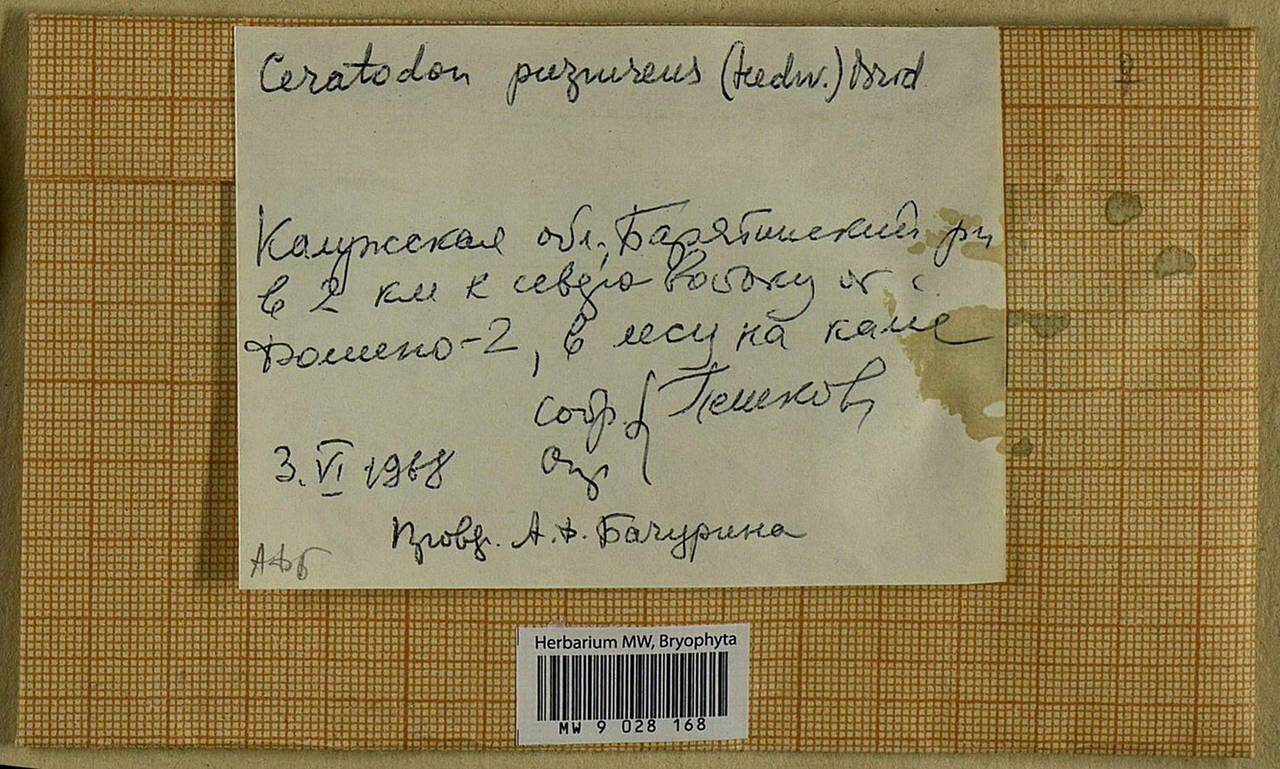 Ceratodon purpureus (Hedw.) Brid
Калужская обл., Барятинский рн
в 2 км к северо востоку от с
Фомино-2, в лесу на камне
собр. { Пешкова
опр.
3.VI 1968
Провер. А.Ф. Бачурина
АФБ
Herbarium MW, Bryophyta
MW 9 028 168